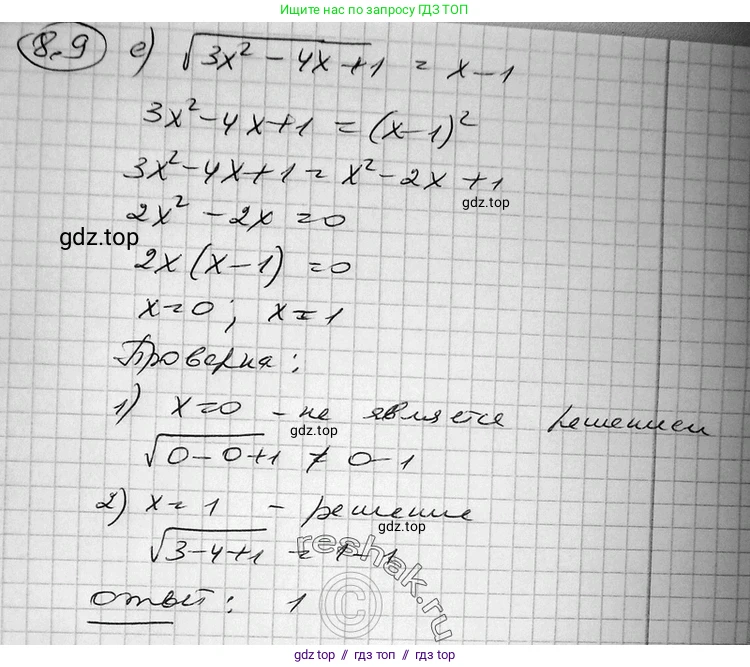 Ищите нас по запросу ГДЗ ТОП
8.9 е) √(3x² - 4x + 1) = x - 1
3x² - 4x + 1 = (x - 1)²
3x² - 4x + 1 = x² - 2x + 1
gdz.top
2x² - 2x = 0
gdz.top
2x(x - 1) = 0
x = 0; x = 1
Проверка:
1) x = 0 - не является решением
gdz.top
√(0 - 0 + 1) ≠ 0 - 1
2) x = 1 - решение
gdz.top
√(3 - 4 + 1) = 1 - 1
reshak.ru
©
ответ: 1
gdz.top // gdz.top // gdz.top